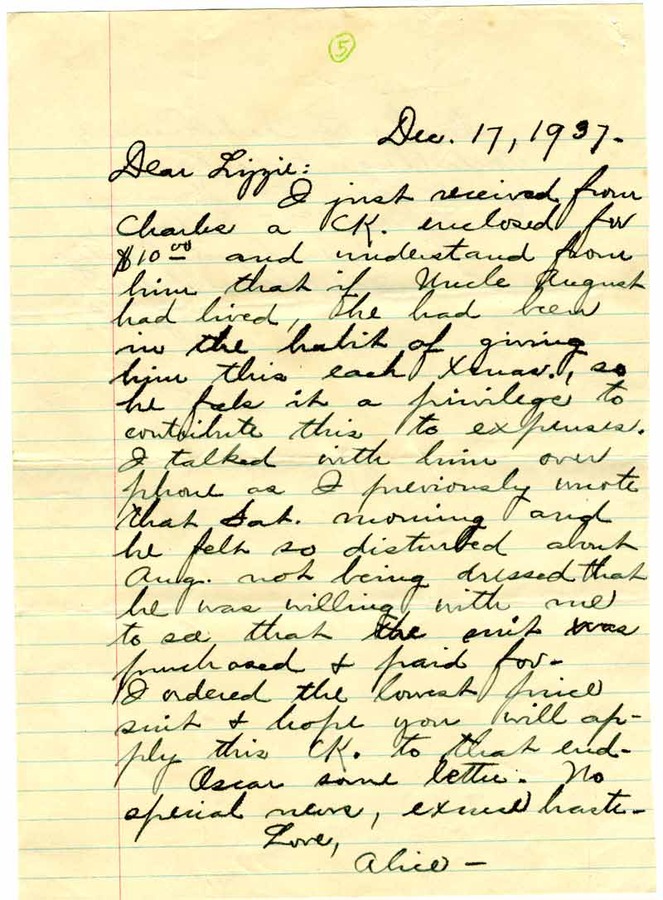 5
Dec. 17, 1937.
Dear Lizzie:
I just received from
Charles a CK. enclosed for
$10 00 and understand from
him that if Uncle August
had lived, he had been
in the habit of giving
him this each Xmas., so
he feels it a privilege to
contribute this to expenses.
I talked with him over
phone as I previously wrote
that Sat. morning and
he felt so disturbed about
Aug. not being dressed that
he was willing with me
to see that the suit was
purchased & paid for-
I ordered the lowest price
suit & hope you will ap-
ply this CK. to that end-
Oscar some better. No
special news, excuse haste-
Love,
Alice -